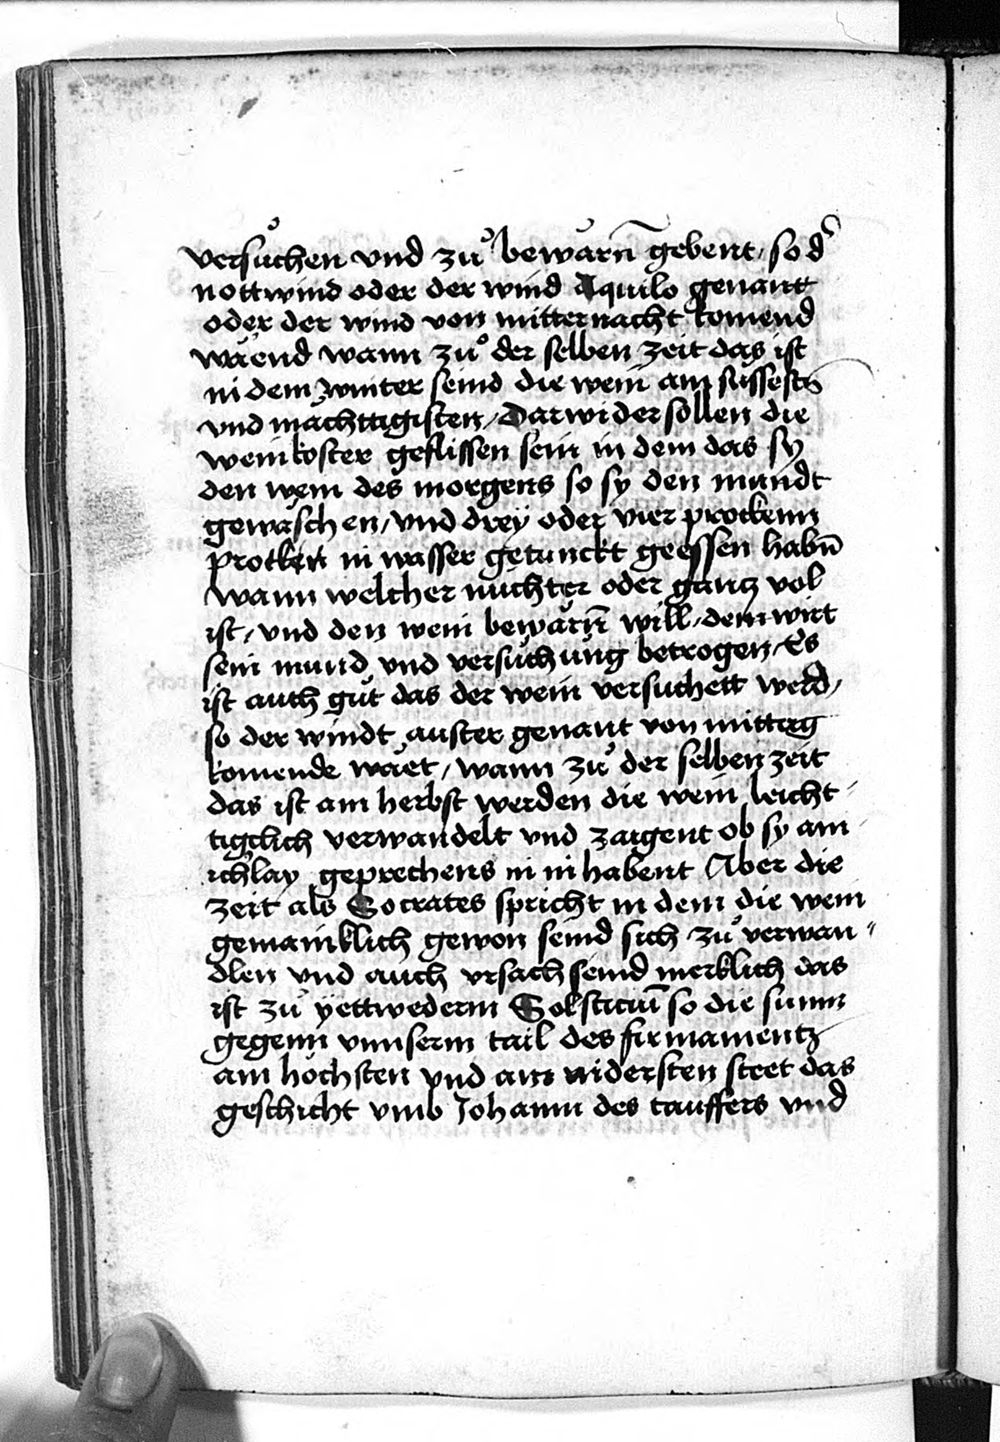 versuͦchen vnd zuͦ bewarn̄ gebent / so d᷑
nottwind oder der wind Aquilo genant
oder der wind von mitternacht komend
wäend wann zuͦ der selben zeit das ist
in dem winter seind die wein am süssestn̄
vnd mächttigisten / Darwider sollen die
weinkoster geflissen sein in dem das sy
den wein des morgens so sy den mundt
gewäschen / vnd drey oder vier procken
procken in wasser getunckt geessen habn̄
wann welcher nuchter oder gantz vol
ist / vnd den wein bewärn̄ will / dem wirt
sein mund vnd versuͦchung betrogen / Es
ist auch guͦt das der wein versuͦchett werd /
so der windt auster genant von mittag
komende wäet / wann zuͦ der selben zeit
das ist am herbst werden die wein leicht
tigclich verwandelt vnd zaigent ob sy ain
ichlay geprechens in in habent Aber die
zeit als Socrates spricht in dem die wein
gemainklich gewon seind sich zuͦ verwan〃
dlen vnd auch vrsach seind merklich das
ist zuͦ yettwederm Solsticiū so die sunn
gegenn vnnserm tail des firmamentz
am höchsten vnd am nidersten steet das
geschicht vmb Johann des tauffers vnd